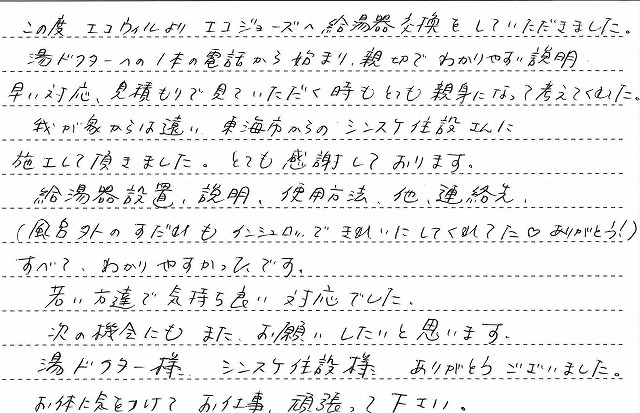 この度 エコウィルより エコジョーズへ給湯器交換をしていただきました。
湯ドクターへの1本の電話から始まり、親切でわかりやすい説明
早い対応、見積もりで見ていただく時もとても親身になって考えてくれた。
我が家からは遠い 東海市からの シンスケ住設さんに
施工して頂きました。とても感謝しております。
給湯器設置、説明、使用方法、他、連絡先、
(風呂外のすだれも インシュロックで きれいにしてくれてた♡ ありがとう!)
すべて、わかりやすかったです。
若い方達で気持ち良い対応でした。
次の機会にも また、お願いしたいと思います。
湯ドクター様 シンスケ住設様 ありがとうございました。
お体に気をつけて お仕事、頑張って下さい。